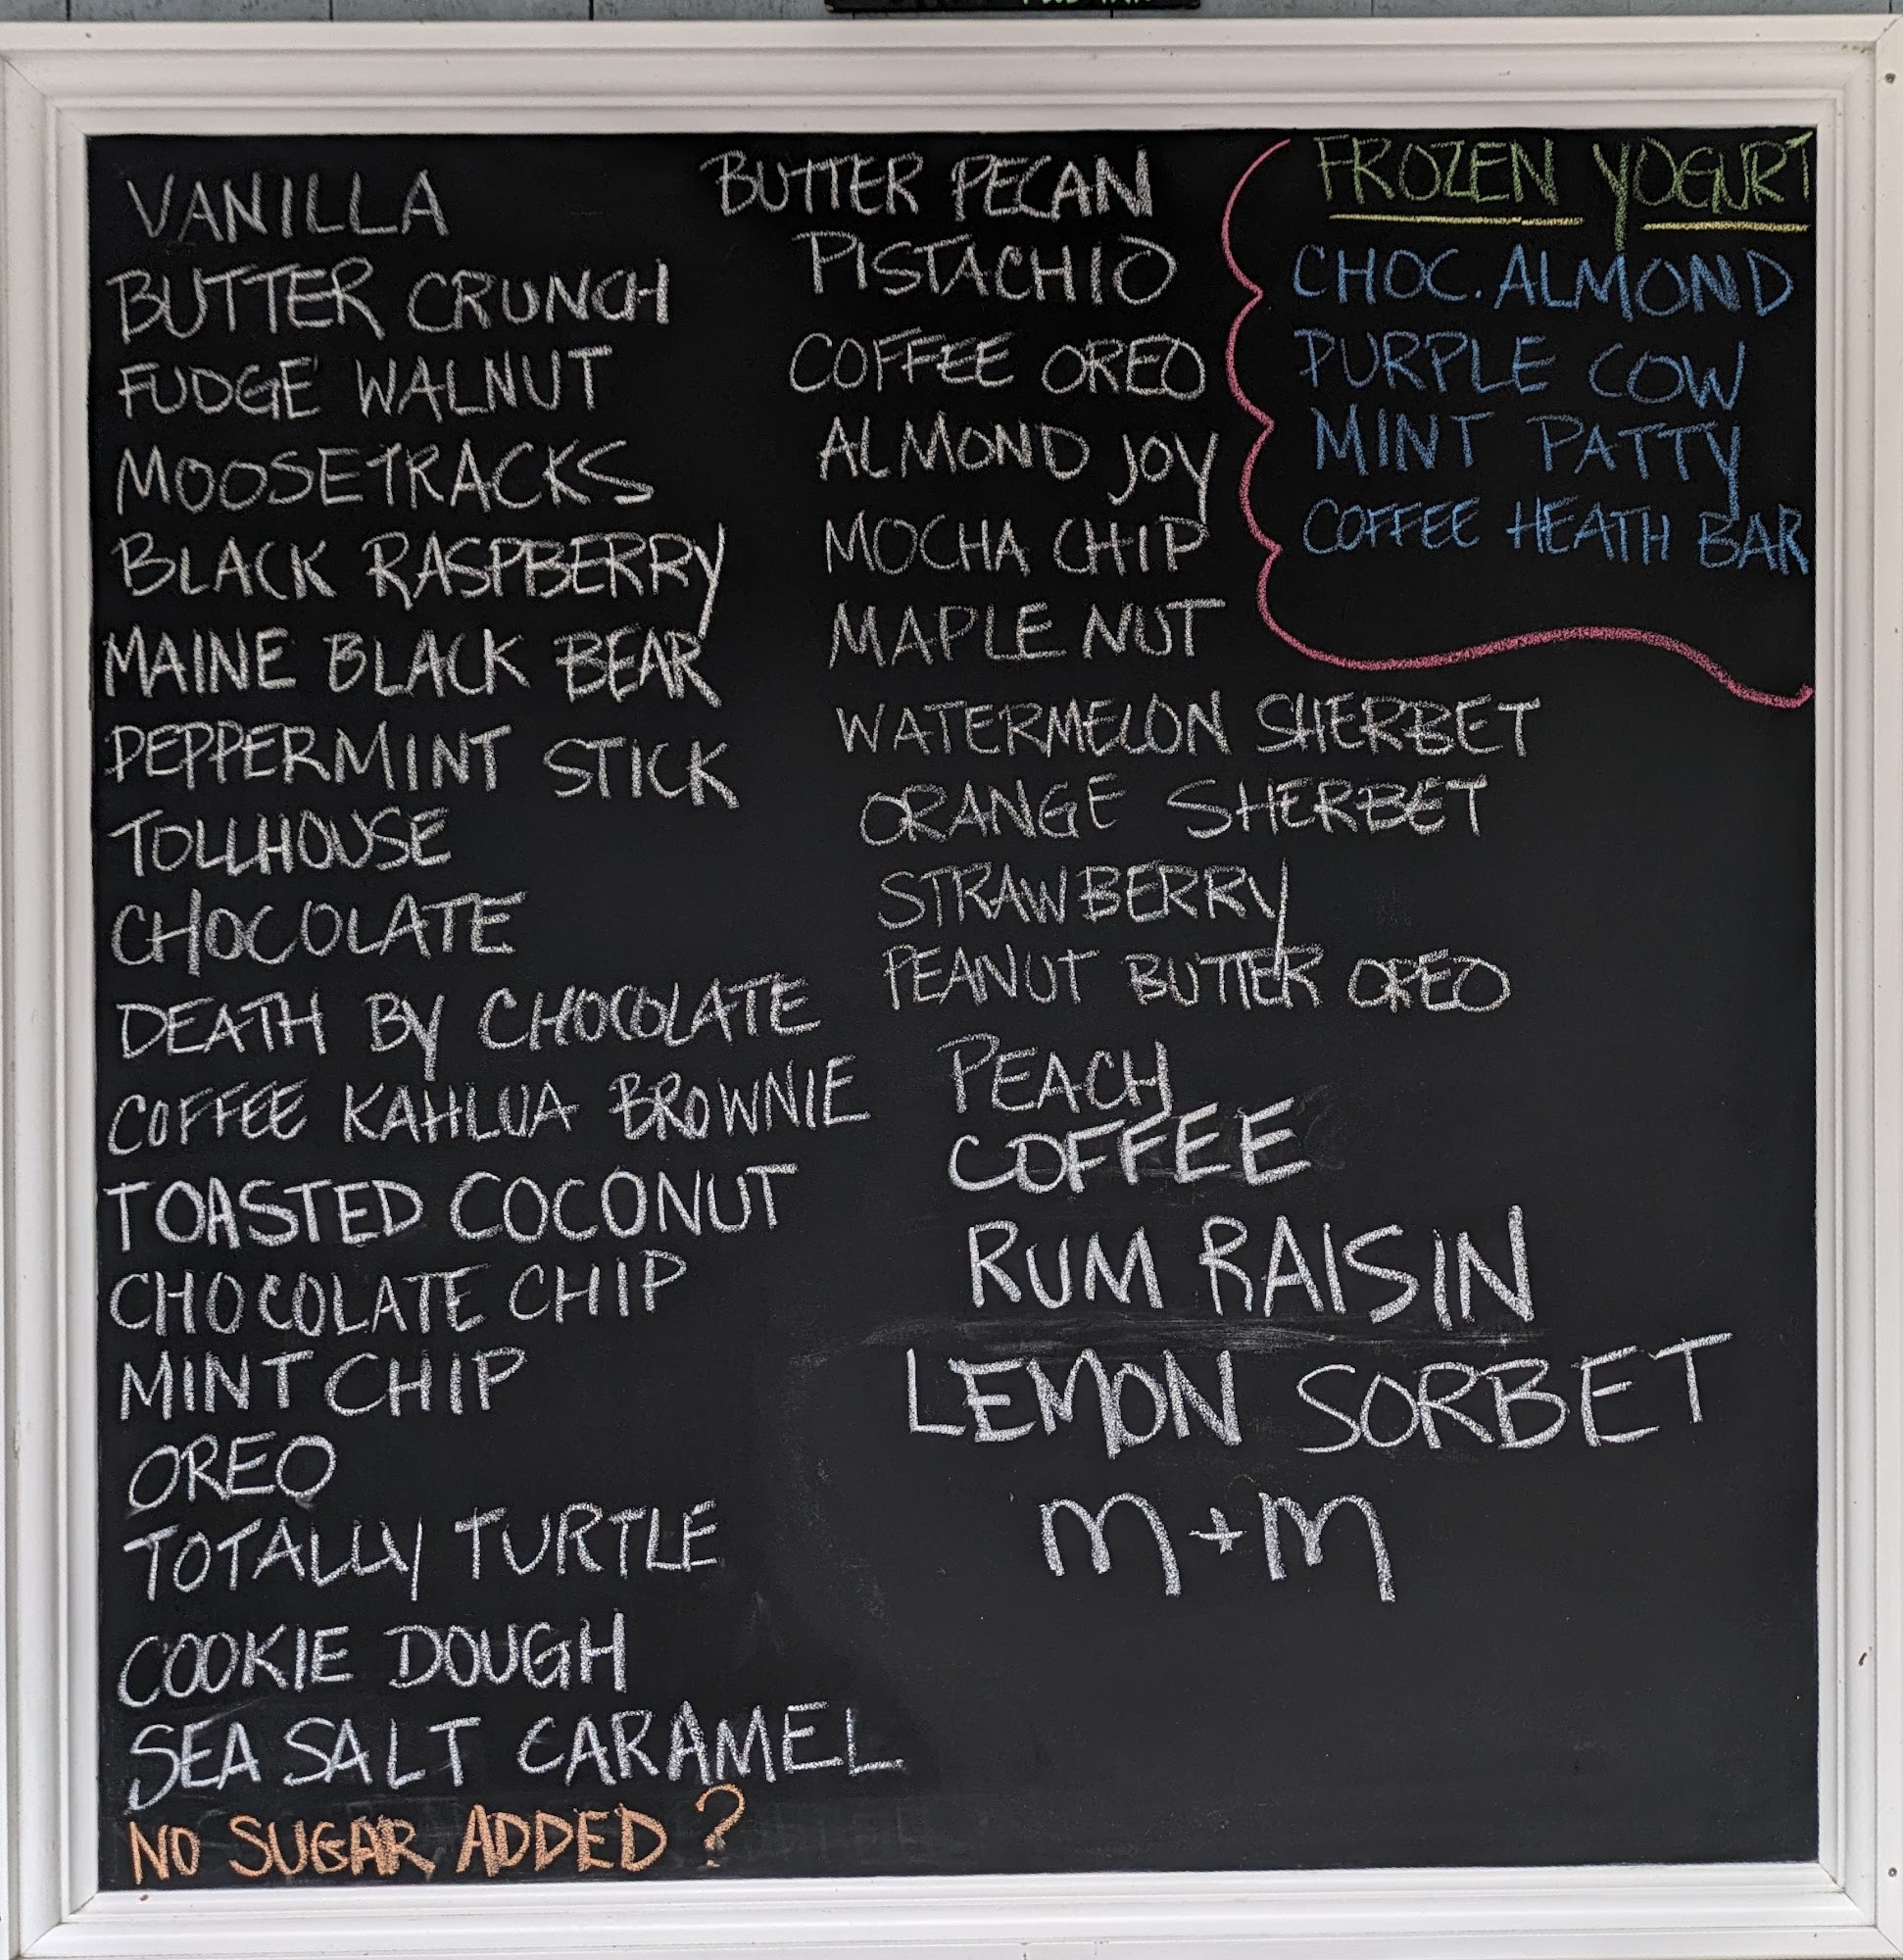 VANILLA
BUTTER CRUNCH
FUDGE WALNUT
MOOSETRACKS
BLACK RASPBERRY
MAINE BLACK BEAR
PEPPERMINT STICK
TOLLHOUSE
CHOCOLATE
DEATH BY CHOCOLATE
COFFEE KAHLUA BROWNIE
TOASTED COCONUT
CHOCOLATE CHIP
MINT CHIP
OREO
TOTALLY TURTLE
COOKIE DOUGH
SEA SALT CARAMEL
NO SUGAR ADDED ?
BUTTER PECAN
PISTACHIO
COFFEE OREO
ALMOND JOY
MOCHA CHIP
MAPLE NUT
WATERMELON SHERBET
ORANGE SHERBET
STRAWBERRY
PEANUT BUTTER OREO
PEACH
COFFEE
RUM RAISIN
LEMON SORBET
M+M
FROZEN YOGURT
CHOC. ALMOND
PURPLE COW
MINT PATTY
COFFEE HEATH BAR